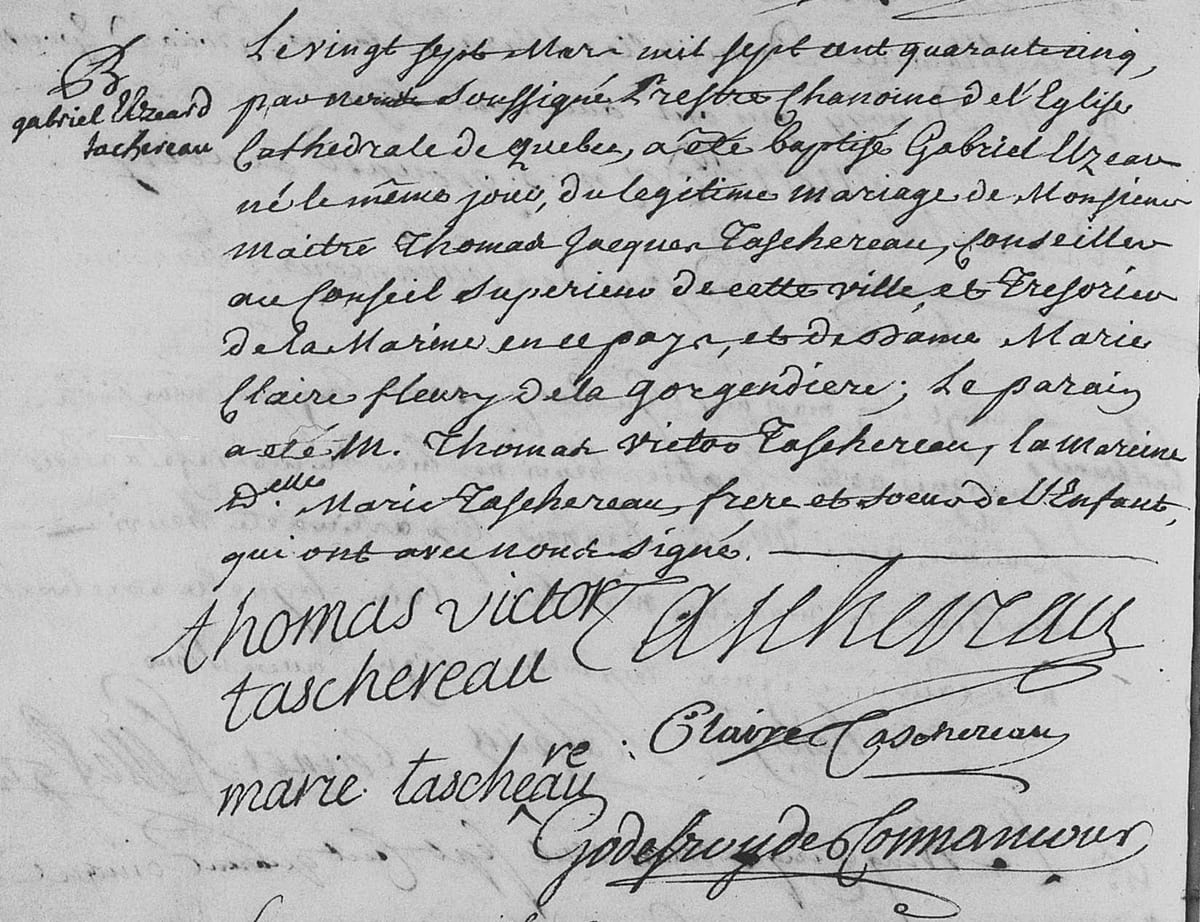 B
gabriel Elzeard
tachereau
Le vingt sept Mars mil sept cent quarante cinq,
par nous soussigné Prestre Chanoine de l'Eglise
Cathedrale de Quebec, a été baptisé Gabriel Elzear
né le même jour, du legitime mariage de Monsieur
maitre Thomas Jacques Taschereau, Conseiller
au Conseil superieur de cette ville, et Tresorier
de la Marine en ce pays, et de Dame Marie
Claire fleury de la gorgendiere; Le parain
a été M. Thomas victor Taschereau, la mareine
D.elle Marie Taschereau, frere et soeur de l'Enfant,
qui ont avec nous signé.
thomas victor Taschereau
taschereau
Claire Taschereau
marie taschereau
Godefroy de Tonnancour